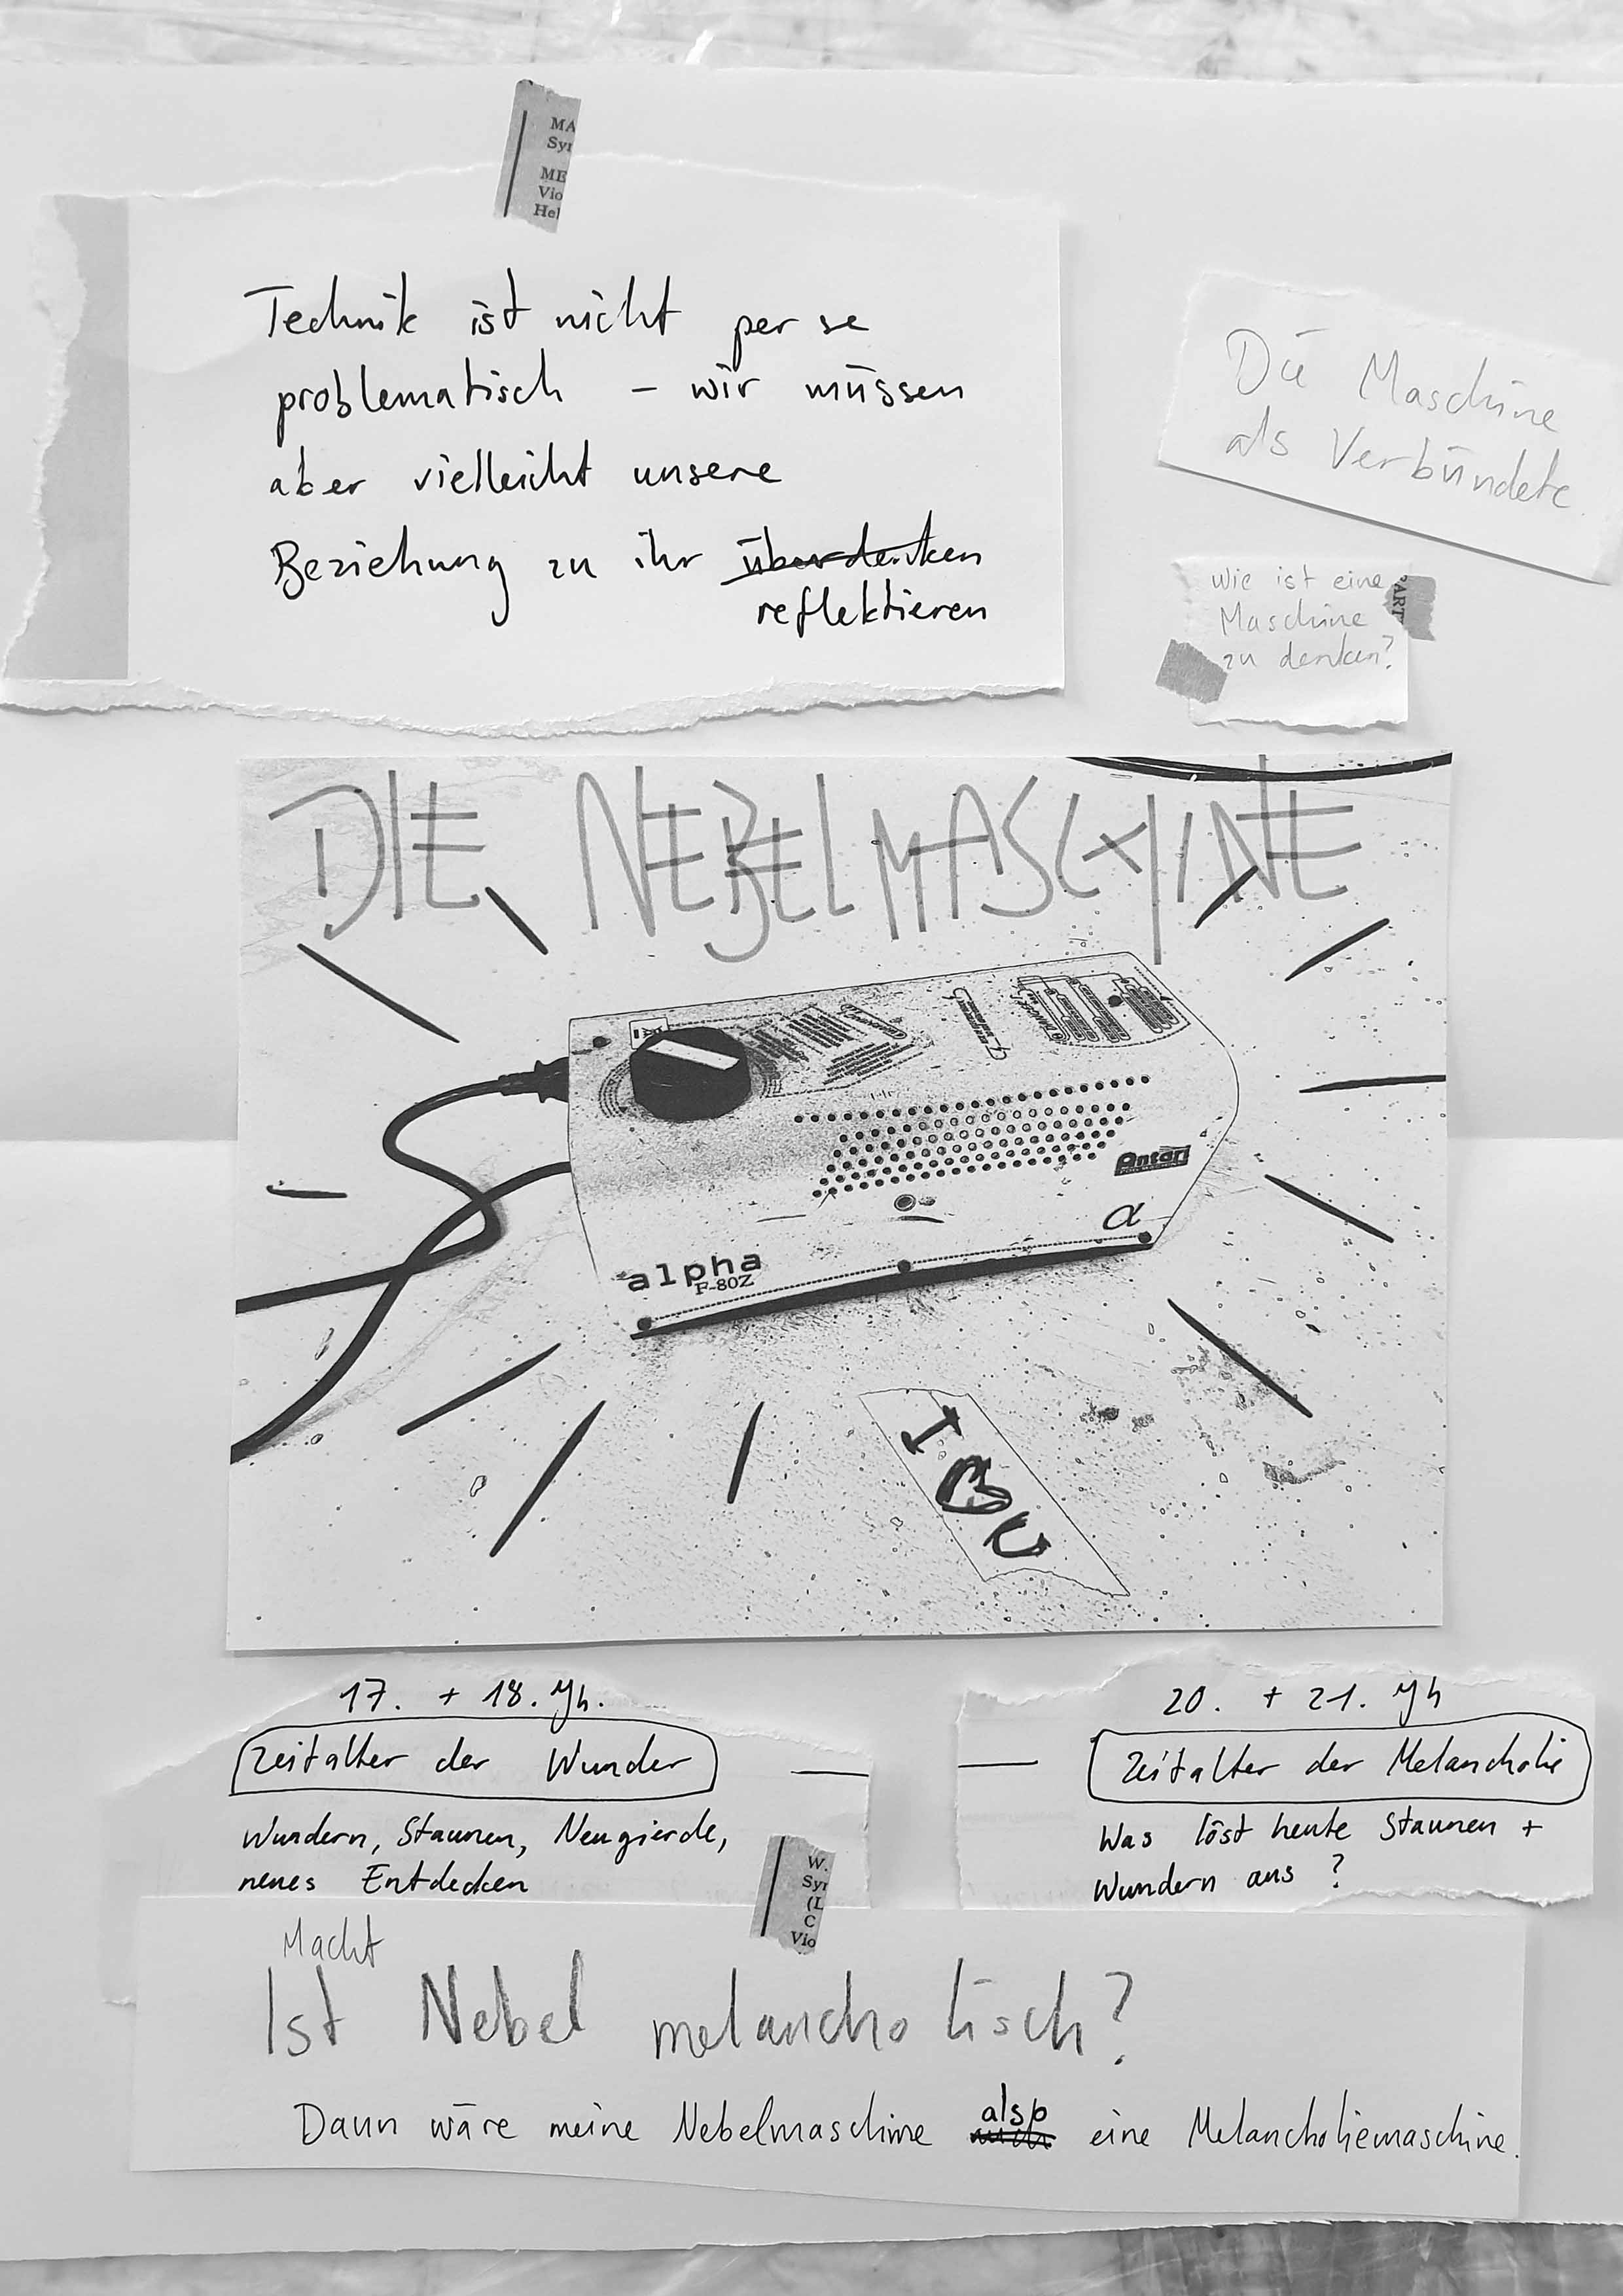 MA
Syr
ME
Vio
Hel
Technik ist nicht per se
problematisch – wir müssen
aber vielleicht unsere
Beziehung zu ihr überdenken
reflektieren
Die Maschine
als Verbündete
Wie ist eine
Maschine
zu denken?
ART
DIE NEBELMASCHINE
Antari
α
alpha
F-80Z
I ♥ U
17. + 18. Jh.
Zeitalter der Wunder —
Wundern, Staunen, Neugierde,
neues Entdecken
— 20. + 21. Jh
Zeitalter der Melancholie
Was löst heute Staunen +
Wundern aus ?
W.
Syr
(L
C
Vio
Macht
Ist Nebel melancholisch?
Dann wäre meine Nebelmaschine also eine Melancholiemaschine.